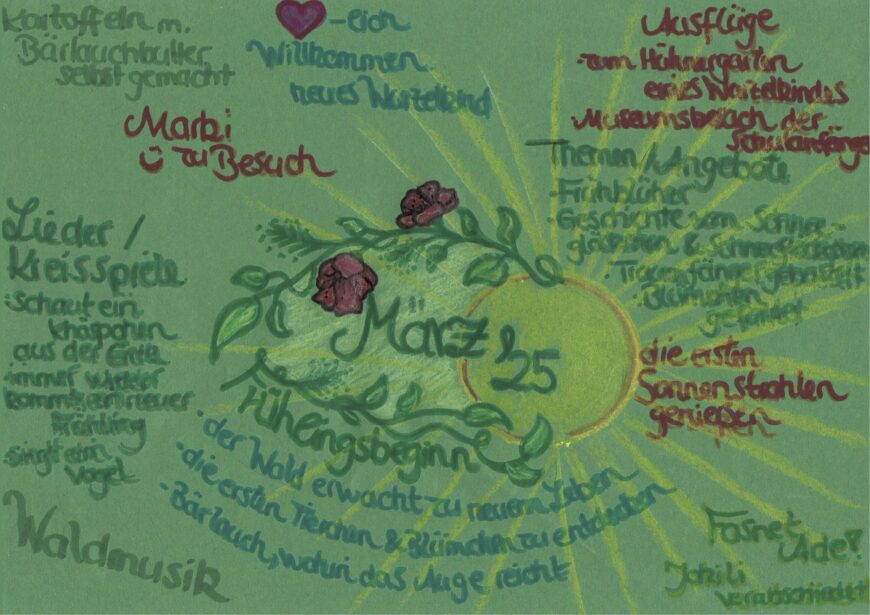 Kartoffeln m.
Bärlauchbutter
selbst gemacht
-lich
Willkommen
neues Wurzelkind
Ausflüge
- zum Hühnergarten
eines Wurzelkindes
- Museumsbesuch der
Schulanfänger
Marbi
zu Besuch
Themen / Angebote
- Frühblüher
- Geschichte vom Schnee-
glöckchen &
- Traumfänger gebastelt
- Blümchen
gefaltet
Lieder /
Kreisspiele
- Schaut ein
Knöspchen
aus der Erde
- immer wieder
kommt ein neuer
Frühling
- Singt ein
Vogel
März '25
Frühlingsbeginn
- der Wald erwacht zu neuem Leben
- die ersten Tierchen & Blümchen zu entdecken
- Bärlauch, wohin das Auge reicht
die ersten
Sonnenstrahlen
genießen
Waldmusik
Fasnet
Ade!
verabschiedet